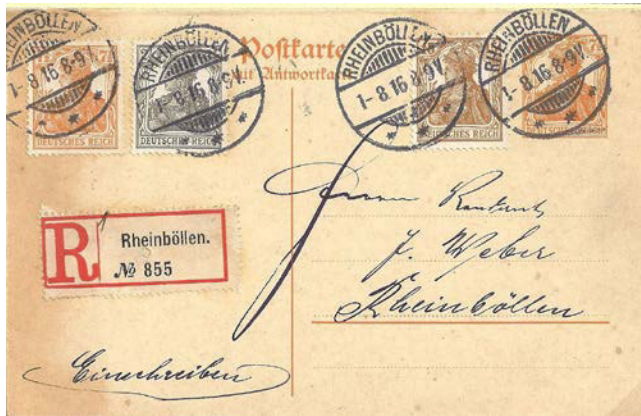 RHEINBÖLLEN
1-8.16.8-9V.
DEUTSCHES REICH
RHEINBÖLLEN
1-8.16.8-9V.
DEUTSCHES REICH
Postkarte
mit Antwortkarte
RHEINBÖLLEN
1-8.16.8-9V.
DEUTSCHES REICH
RHEINBÖLLEN
1-8.16.8-9V.
R
Rheinböllen.
№ 855
Herrn
F. Weber
Rheinböllen
Einschreiben